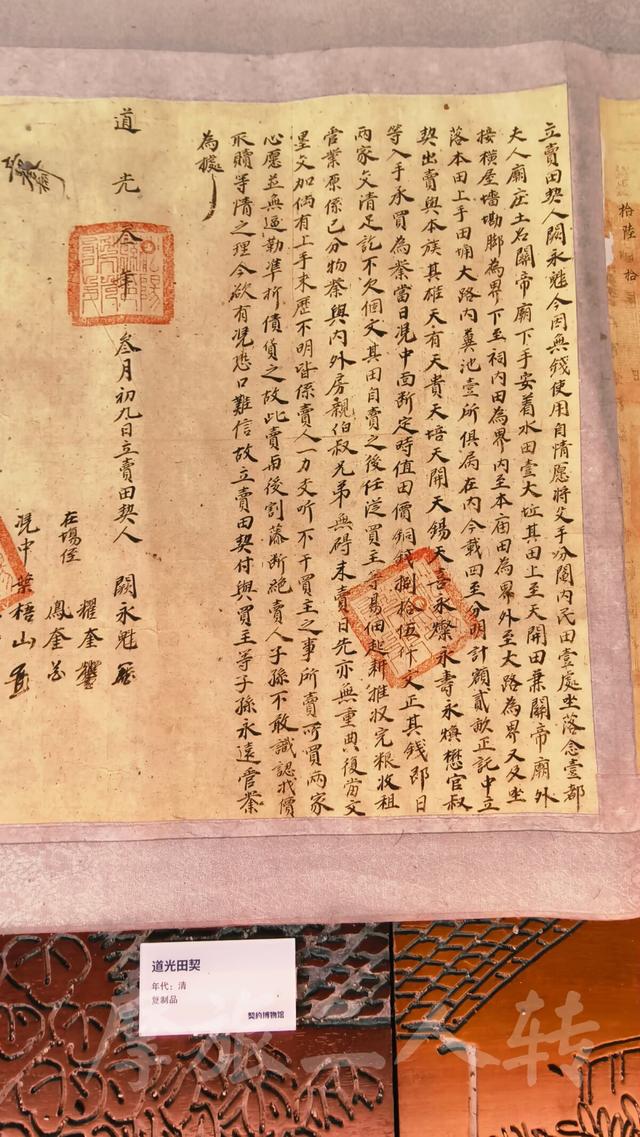 立賣田契人闕永魁今因無錢使用自情愿將父手分閣内民田壹處坐落念壹都
夫人廟庄土名關帝廟下手安着水田壹大坵其田上至天開田兼關帝廟外
接橫屋墻勘脚為界下至祠内田為界内至本庙田為界外至大路為界又及坐
落本田上手田塝大路内糞池壹所俱局在内今載四至分明計額貳畝正託中立
契出賣與本族其雄天有天貴天培天開天錫天喜永燦永壽永煥懋官叔
等入手承買為業當日凴中面断定時值田價銅錢捌拾伍仟文正其錢即日
兩家交清足訖不欠個文其田自賣之後任從買主等易佃起耕推收完粮收租
管業原係己分物業與内外房親伯叔兄弟無碍未賣日先亦無重典復當文
墨交加倘有上手来歷不明皆係賣人一力支听不干買主之事所賣所買兩家
心愿並無逼勒準折債貨之故此賣由後割藤断絶賣人子孫不敢識認找價
取贖等情之理今欲有凴恐口難信故立賣田契付與買主等子孫永遠管業
為據
道光叁年叁月初九日立賣田契人 闕永魁
在塲侄 耀奎
鳳奎
凴中 葉梧山
拾陸
拾
道光田契
年代：清
复制品
契约博物馆
厚旅二人转